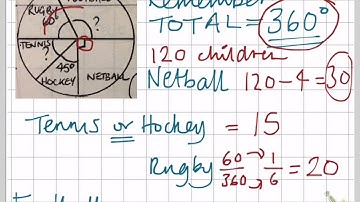 Remember
TOTAL = 360°
RUGBY
60°
?
?
TENNIS
45°
HOCKEY
NETBALL
120 children
Netball 120-4=30
Tennis or Hockey = 15
Rugby 60/360 → 1/6 = 20